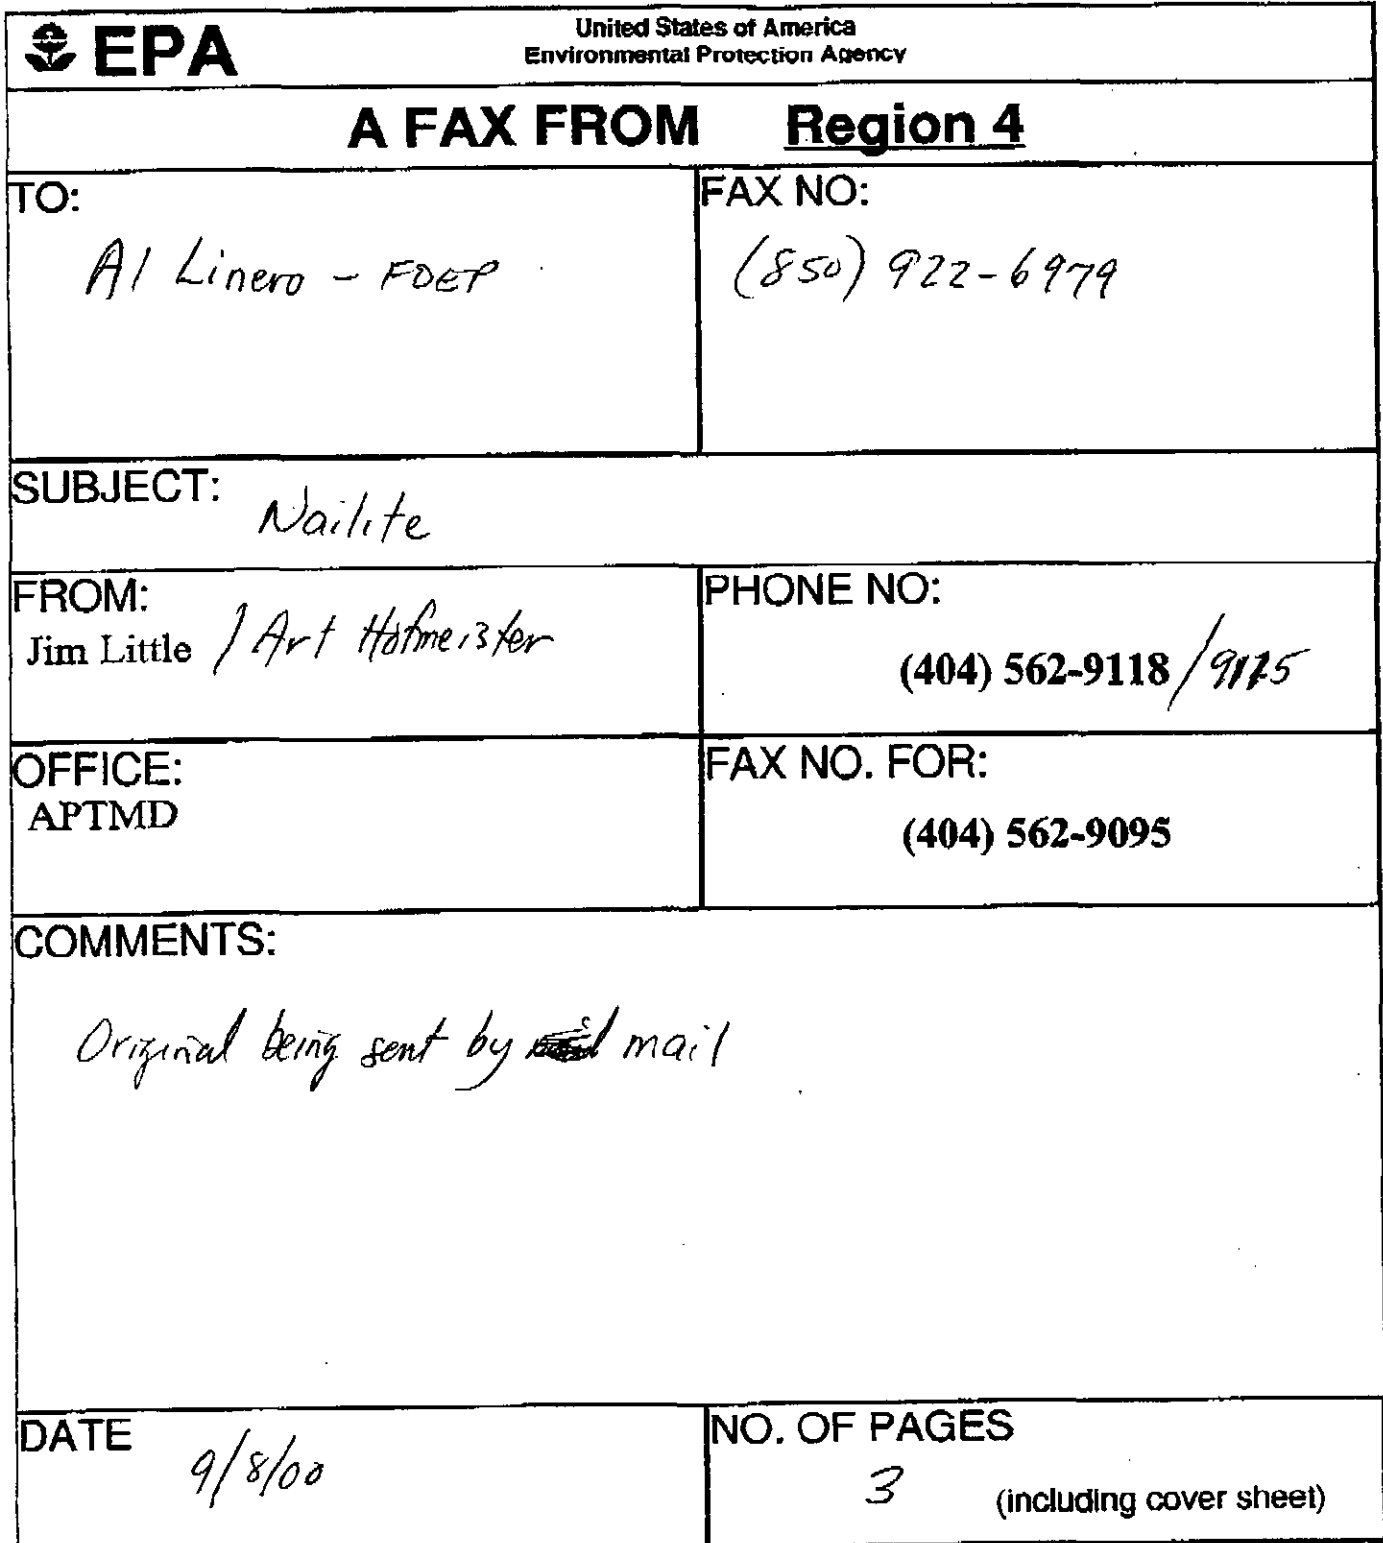 EPA
United States of America
Environmental Protection Agency
A FAX FROM Region 4
TO:
Al Linero - FDEP
FAX NO:
(850) 922-6979
SUBJECT:
Nailite
FROM:
Jim Little / Art Hofmeister
PHONE NO:
(404) 562-9118 / 9115
OFFICE:
APTMD
FAX NO. FOR:
(404) 562-9095
COMMENTS:
Original being sent by mail
DATE
9/8/00
NO. OF PAGES
3 (including cover sheet)